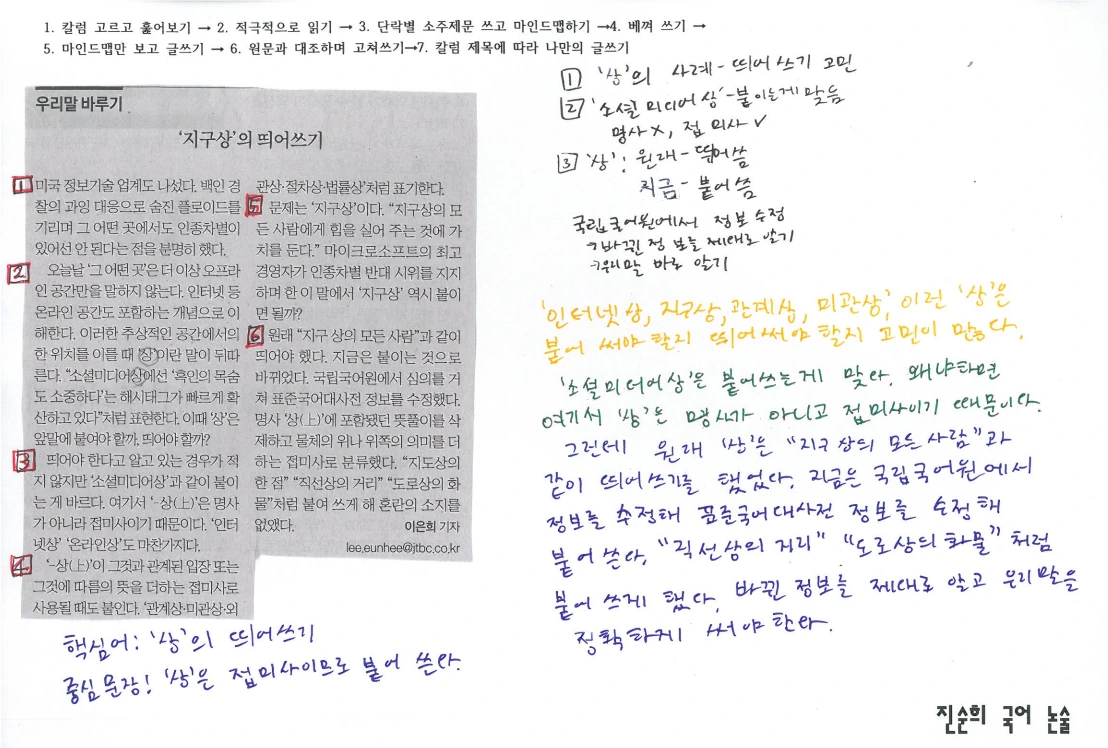 1. 칼럼 고르고 훑어보기 → 2. 적극적으로 읽기 → 3. 단락별 소주제문 쓰고 마인드맵하기 →4. 베껴 쓰기 →
5. 마인드맵만 보고 글쓰기 → 6. 원문과 대조하며 고쳐쓰기→7. 칼럼 제목에 따라 나만의 글쓰기
우리말 바루기
‘지구상’의 띄어쓰기
1 미국 정보기술 업계도 나섰다. 백인 경
찰의 과잉 대응으로 숨진 플로이드를
기리며 그 어떤 곳에서도 인종차별이
있어선 안 된다는 점을 분명히 했다.
2 오늘날 ‘그 어떤 곳’은 더 이상 오프라
인 공간만을 말하지 않는다. 인터넷 등
온라인 공간도 포함하는 개념으로 이
해한다. 이러한 추상적인 공간에서의
한 위치를 이를 때 ‘상’이란 말이 뒤따
른다. “소셜미디어상에선 ‘흑인의 목숨
도 소중하다’는 해시태그가 빠르게 확
산하고 있다”처럼 표현한다. 이때 ‘상’은
앞말에 붙여야 할까, 띄어야 할까?
3 띄어야 한다고 알고 있는 경우가 적
지 않지만 ‘소셜미디어상’과 같이 붙이
는 게 바르다. 여기서 ‘-상(上)’은 명사
가 아니라 접미사이기 때문이다. ‘인터
넷상’ ‘온라인상’도 마찬가지다.
4 ‘-상(上)’이 그것과 관계된 입장 또는
그것에 따름의 뜻을 더하는 접미사로
사용될 때도 붙인다. ‘관계상·미관상·외
관상·절차상·법률상’처럼 표기한다.
5 문제는 ‘지구상’이다. “지구상의 모
든 사람에게 힘을 실어 주는 것에 가
치를 둔다.” 마이크로소프트의 최고
경영자가 인종차별 반대 시위를 지지
하며 한 이 말에서 ‘지구상’ 역시 붙이
면 될까?
6 원래 “지구 상의 모든 사람”과 같이
띄어야 했다. 지금은 붙이는 것으로
바뀌었다. 국립국어원에서 심의를 거
쳐 표준국어대사전 정보를 수정했다.
명사 ‘상(上)’에 포함됐던 뜻풀이를 삭
제하고 물체의 위나 위쪽의 의미를 더
하는 접미사로 분류했다. “지도상의
한 점” “직선상의 거리” “도로상의 화
물”처럼 붙여 쓰게 해 혼란의 소지를
없앴다.
이은희 기자
lee.eunhee@jtbc.co.kr
핵심어: ‘상’의 띄어쓰기
중심문장! ‘상’은 접미사이므로 붙여 쓴다.
1 ‘상’의 사례 - 띄어 쓰기 고민
2 ‘소셜 미디어 상’ - 붙이는게 맞음
명사 x, 접미사 ✓
3 ‘상’: 원래 - 띄어씀
지금 - 붙여씀
국립국어원에서 정보 수정
→바뀐 정보를 제대로 알기
→우리말 바로 알기
‘인터넷상, 지구상, 관계상, 미관상’ 이런 ‘상’은
붙여 써야 할지 띄어 써야 할지 고민이 많다.
‘소셜미디어상’은 붙여쓰는게 맞다. 왜냐하면
여기서 ‘상’은 명사가 아니고 접미사이기 때문이다.
그런데 원래 ‘상’은 “지구 상의 모든 사람”과
같이 띄어쓰기를 했었다. 지금은 국립국어원에서
정보를 수정해 표준국어대사전 정보를 수정해
붙여 쓴다. “직선상의 거리” “도로상의 화물” 처럼
붙여 쓰게 했다. 바뀐 정보를 제대로 알고 우리말을
정확하게 써야 한다.
진순희 국어 논술